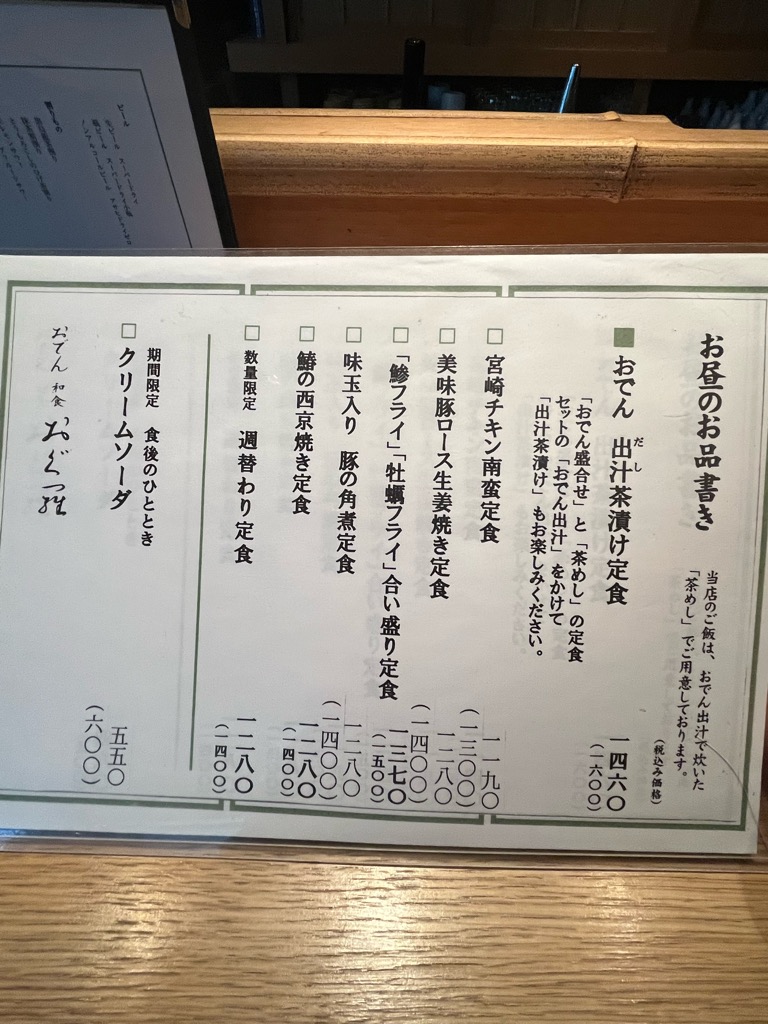 お昼のお品書き
当店のご飯は、おでん出汁で炊いた
「茶めし」でご用意しております。
(税込み価格)
■ おでん 出汁茶漬け定食 一四六〇
だし
(一六〇〇)
「おでん盛合せ」と「茶めし」の定食
セットの「おでん出汁」をかけて
「出汁茶漬け」もお楽しみください。
□ 宮崎チキン南蛮定食 一一九〇
(一三〇〇)
□ 美味豚ロース生姜焼き定食 一二八〇
(一四〇〇)
□ 「鯵フライ」「牡蠣フライ」合い盛り定食 一三七〇
(一五〇〇)
□ 味玉入り 豚の角煮定食 一二八〇
(一四〇〇)
□ 鰆の西京焼き定食 一二八〇
(一四〇〇)
□ 数量限定 週替わり定食 一二八〇
(一四〇〇)
期間限定 食後のひととき
□ クリームソーダ 五五〇
(六〇〇)
おでん 和食 おぐつ羅
ビール